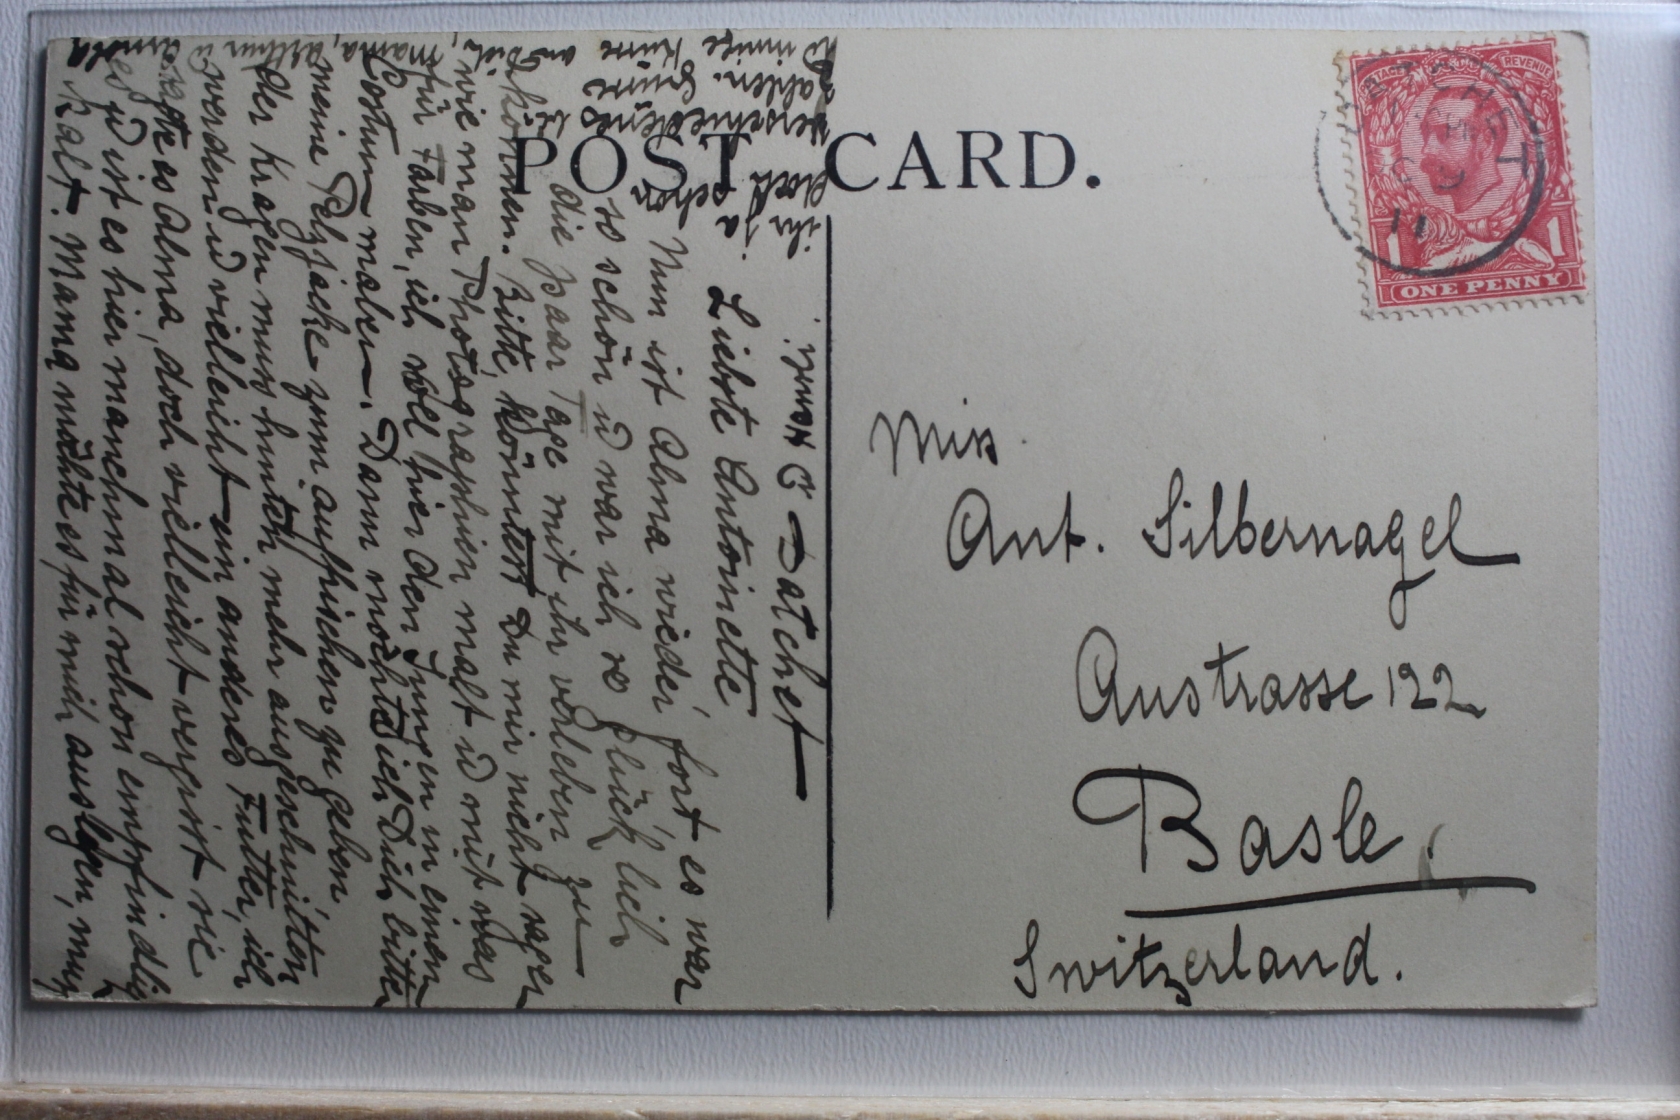 POST CARD.
DATCHET
11
POSTAGE REVENUE
1 1
ONE PENNY
Miss
Ant. Silbernagel
Austrasse 122
Basle.
Switzerland.
Datchet
Liebste Antoinette
Nun ist Alma wieder fort es war
so schön u war ich so glücklich
die paar Tage mit ihr verleben zu
können. Bitte, könntest Du mir nicht sagen
wie man Photographien malt u mit was
für Farben, ich will hier den Jungen in einem
Costum malen. Dann möchte ich Dich bitten
meine Pelzjacke zum auffrischen zu geben
der Kragen muss hinten mehr ausgeschnitten
werden u vielleicht ein anderes Futter, ich
sagte es Alma, doch vielleicht vergisst sie
es u ist es hier manchmal schon empfindlich
kalt. Mama möchte es für mich auslegen, muss
ihr ja
doch schon
verschiedenes be-
zahlen. Grüsse
u innige Küsse an Dich, Mama, Arthur u
Henri.